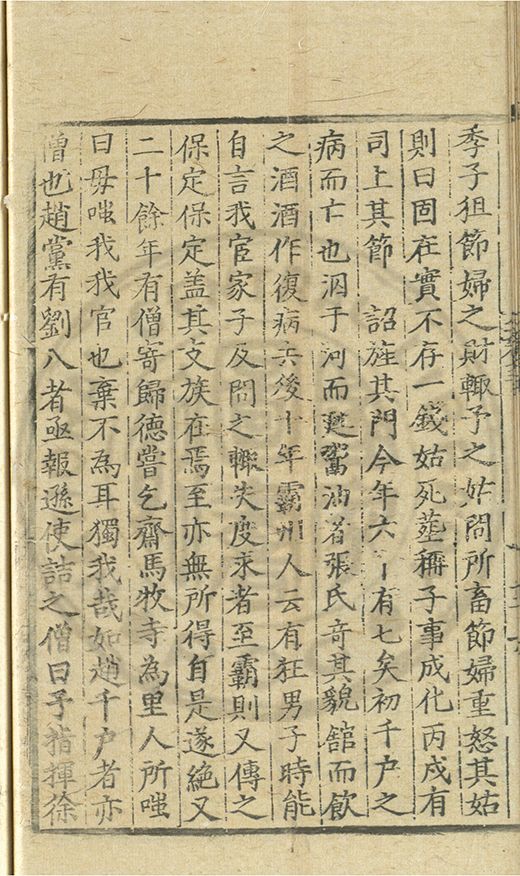 季子狙節婦之財輙予之姑問所畜節婦重怒其姑
則曰固在實不存一錢姑死塟稱子事成化丙戍有
司上其節　詔旌其門今年六十有七矣初千户之
病而亡也泅于河而鬻油者張氏奇其貌舘而飲
之酒酒作復病去後十年霸州人云有狂男子時能
自言我宦家子及問之輙失度求者至霸則又傳之
保定保定盖其支族在焉至亦無所得自是遂絶又
二十餘年有僧寄歸德嘗乞齋馬牧寺為里人所嗤
曰毋嗤我我官也棄不為耳獨我哉如趙千户者亦
僧也趙黨有劉八者亟報遜使詰之僧曰予指揮徐